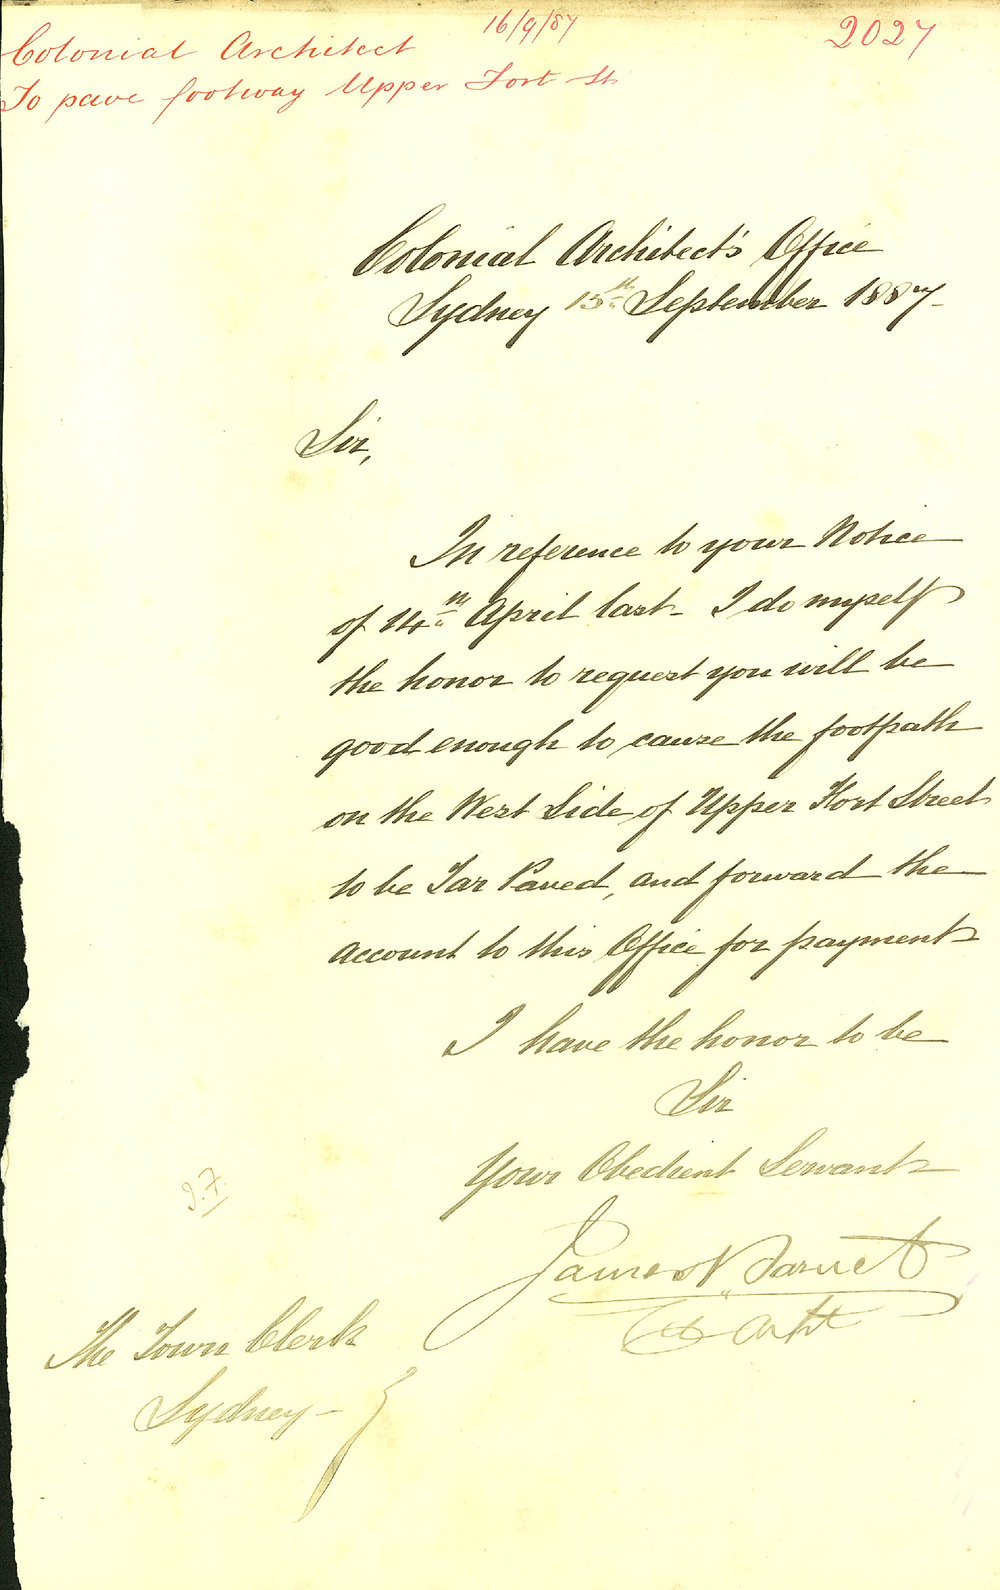 16/9/87
2027
Colonial Architect
To pave footway Upper Fort St
Colonial Architect's Office
Sydney 15th September 1887-
Sir,
In reference to your Notice
of 14th April last - I do myself
the honor to request you will be
good enough to cause the footpath
on the West Side of Upper Fort Street
to be Tar Paved, and forward the
account to this Office for payment
I have the honor to be
Sir
Your Obedient Servant
James Barnet
Col Archt
The Town Clerk
Sydney -